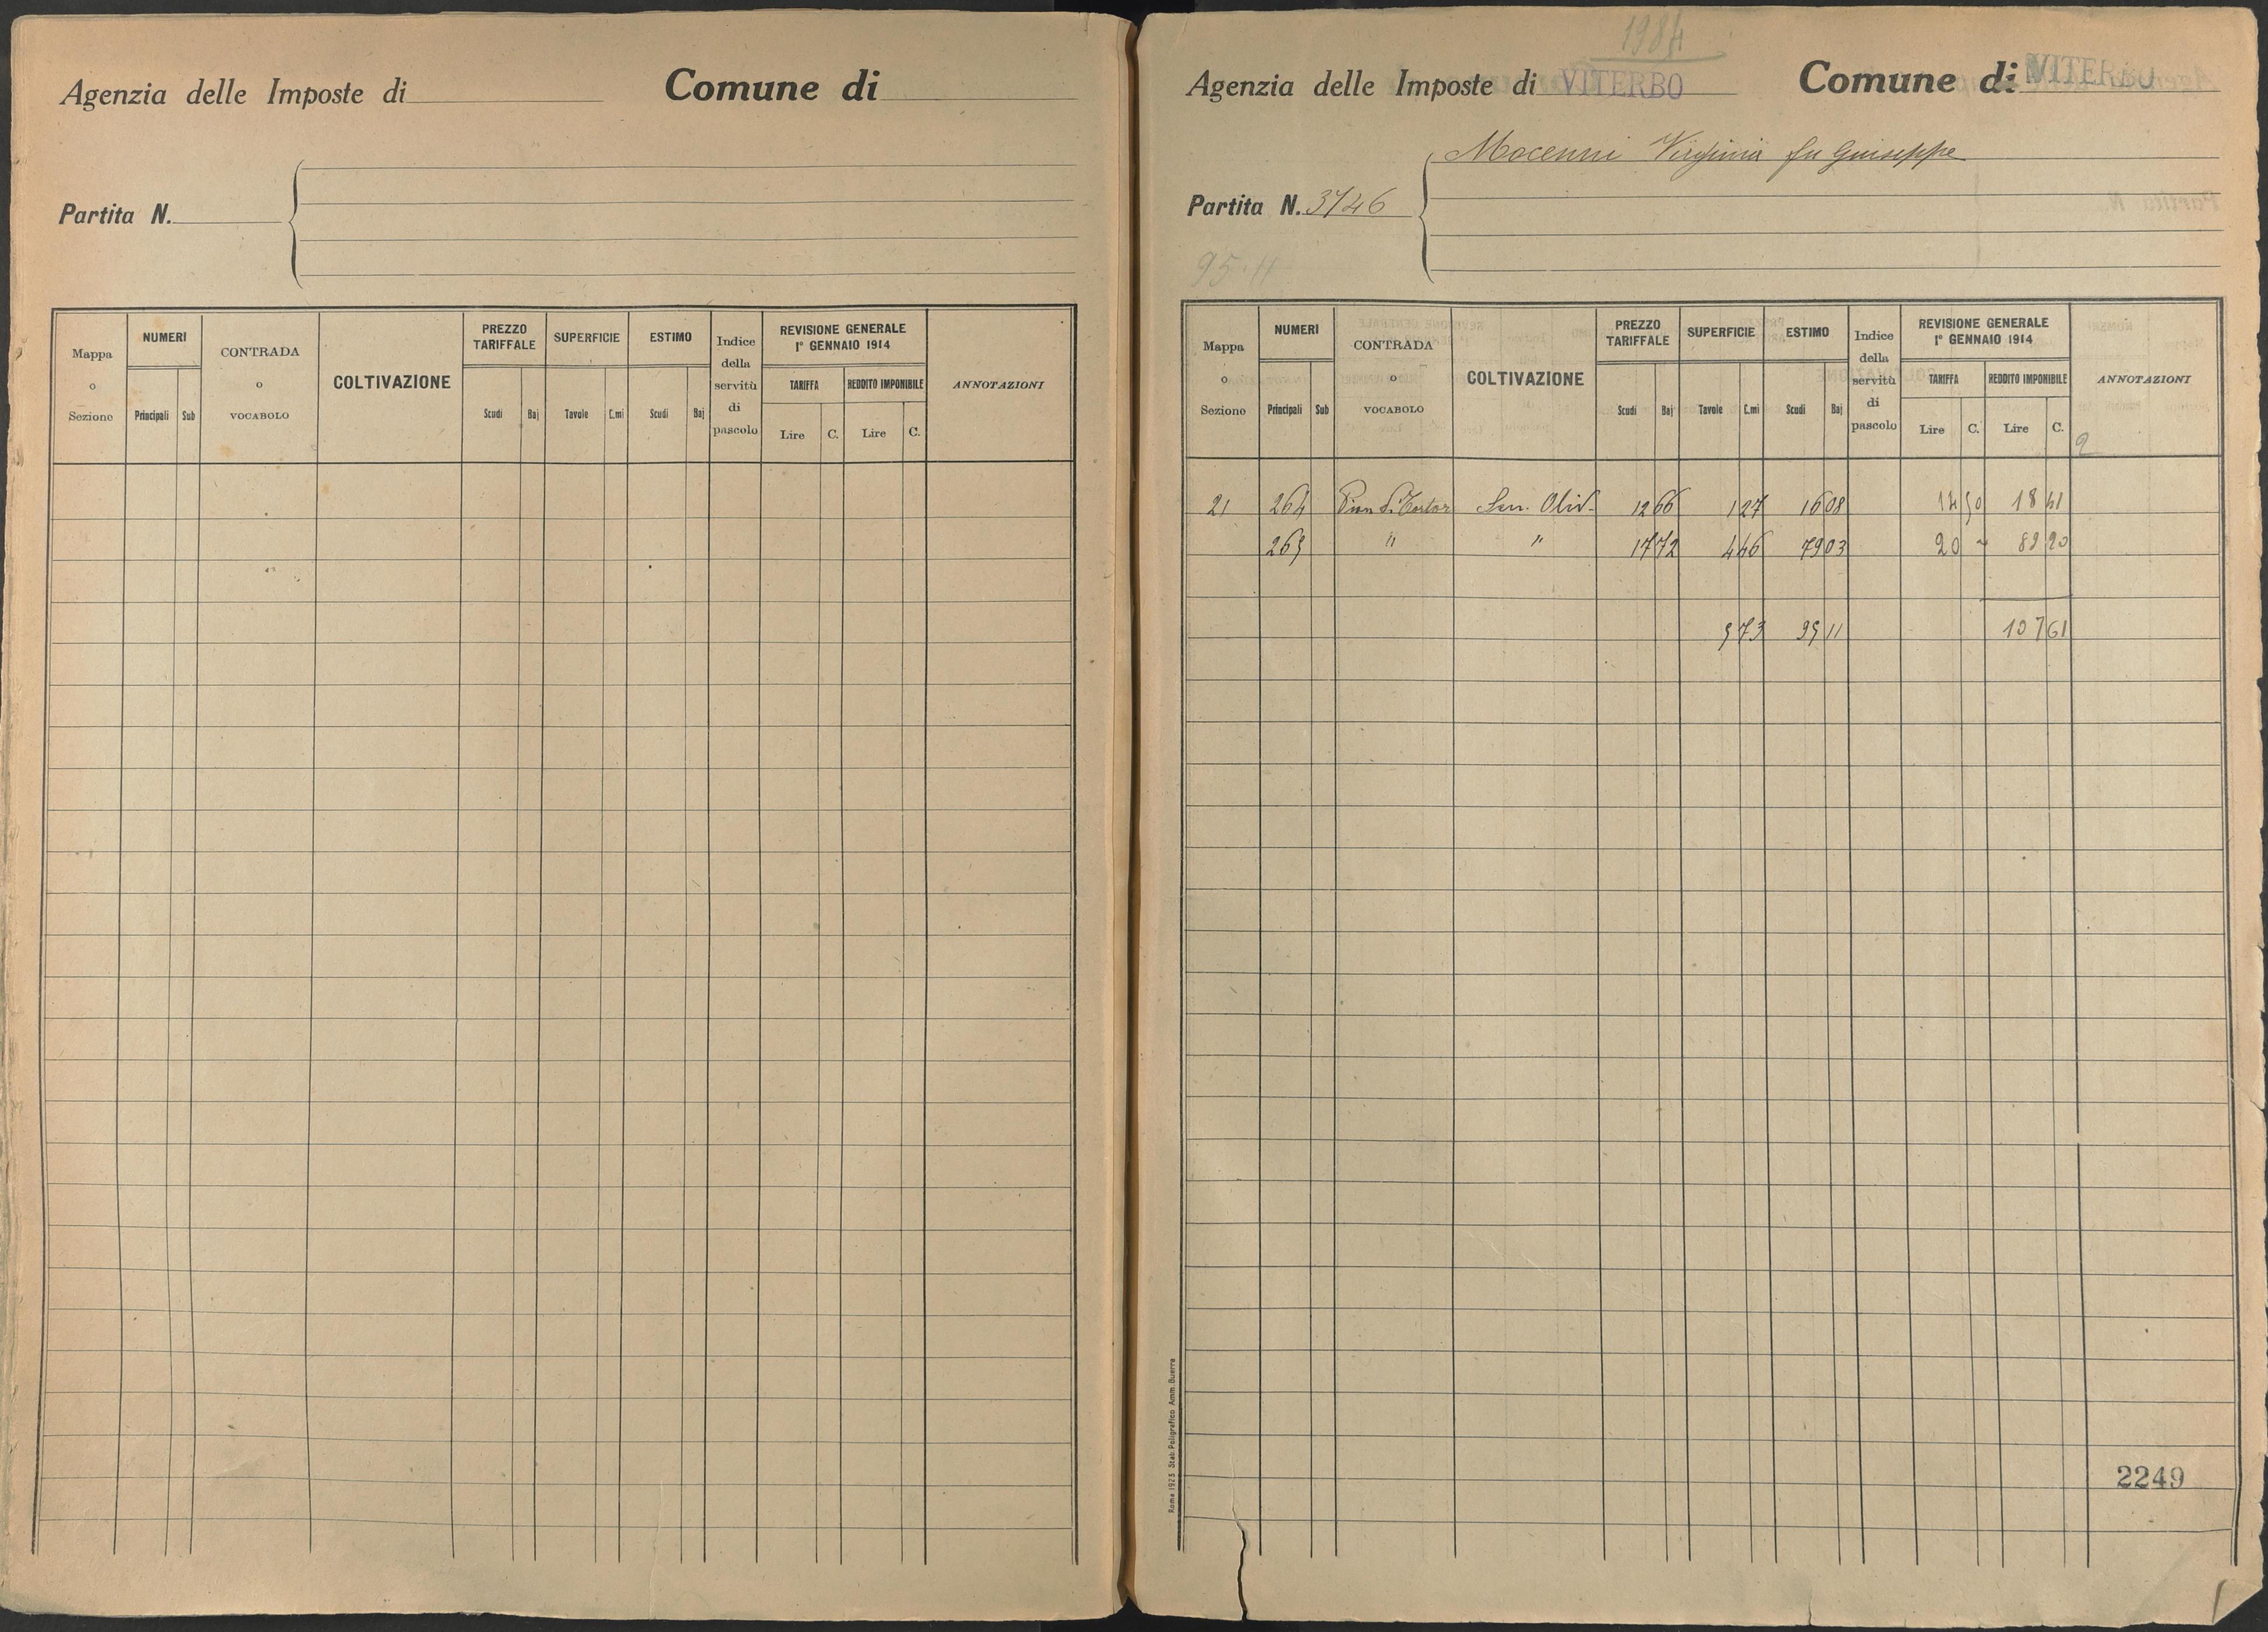 Agenzia delle Imposte di Comune di
Partita N.
Mappa o Sezione NUMERI Principali Sub CONTRADA o VOCABOLO COLTIVAZIONE PREZZO TARIFFALE Scudi Baj SUPERFICIE Tavole C.mi ESTIMO Scudi Baj Indice della servitù di pascolo REVISIONE GENERALE 1° GENNAIO 1914 TARIFFA Lire C. REDDITO IMPONIBILE Lire C. ANNOTAZIONI
1984
Agenzia delle Imposte di VITERBO Comune di VITERBO
Mocenni Virginia fu Giuseppe
Partita N. 3746
95.11
Mappa o Sezione NUMERI Principali Sub CONTRADA o VOCABOLO COLTIVAZIONE PREZZO TARIFFALE Scudi Baj SUPERFICIE Tavole C.mi ESTIMO Scudi Baj Indice della servitù di pascolo REVISIONE GENERALE 1° GENNAIO 1914 TARIFFA Lire C. REDDITO IMPONIBILE Lire C. ANNOTAZIONI
2
21 264 Pian di Tortor Sem. Oliv. 12 66 1 27 16 08 14 50 18 41
265 " " 17 72 4 46 79 03 20 ~ 89 20
5 73 95 11 107 61
2249
Roma 1923 Stab. Poligrafico Amm. Guerra